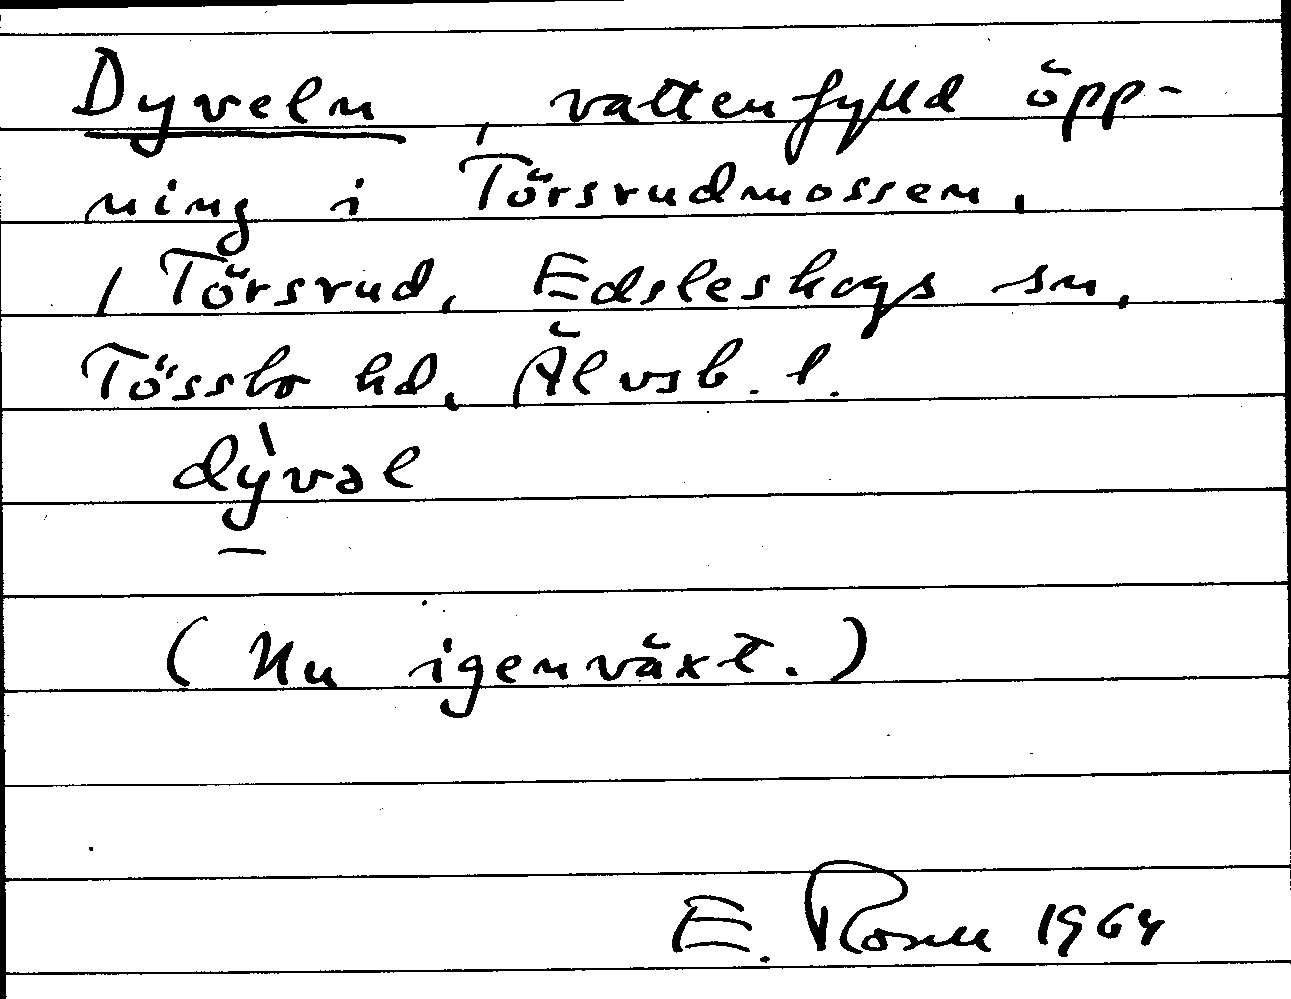 Dyveln, vattenfylld öpp-
ning i Törsrudmossen,
/ Törsrud, Edsleskogs sn,
Tössbo hd, Älvsb. l.
dỳ̱vəl
(Nu igenväxt.)
E. Rosell 1964